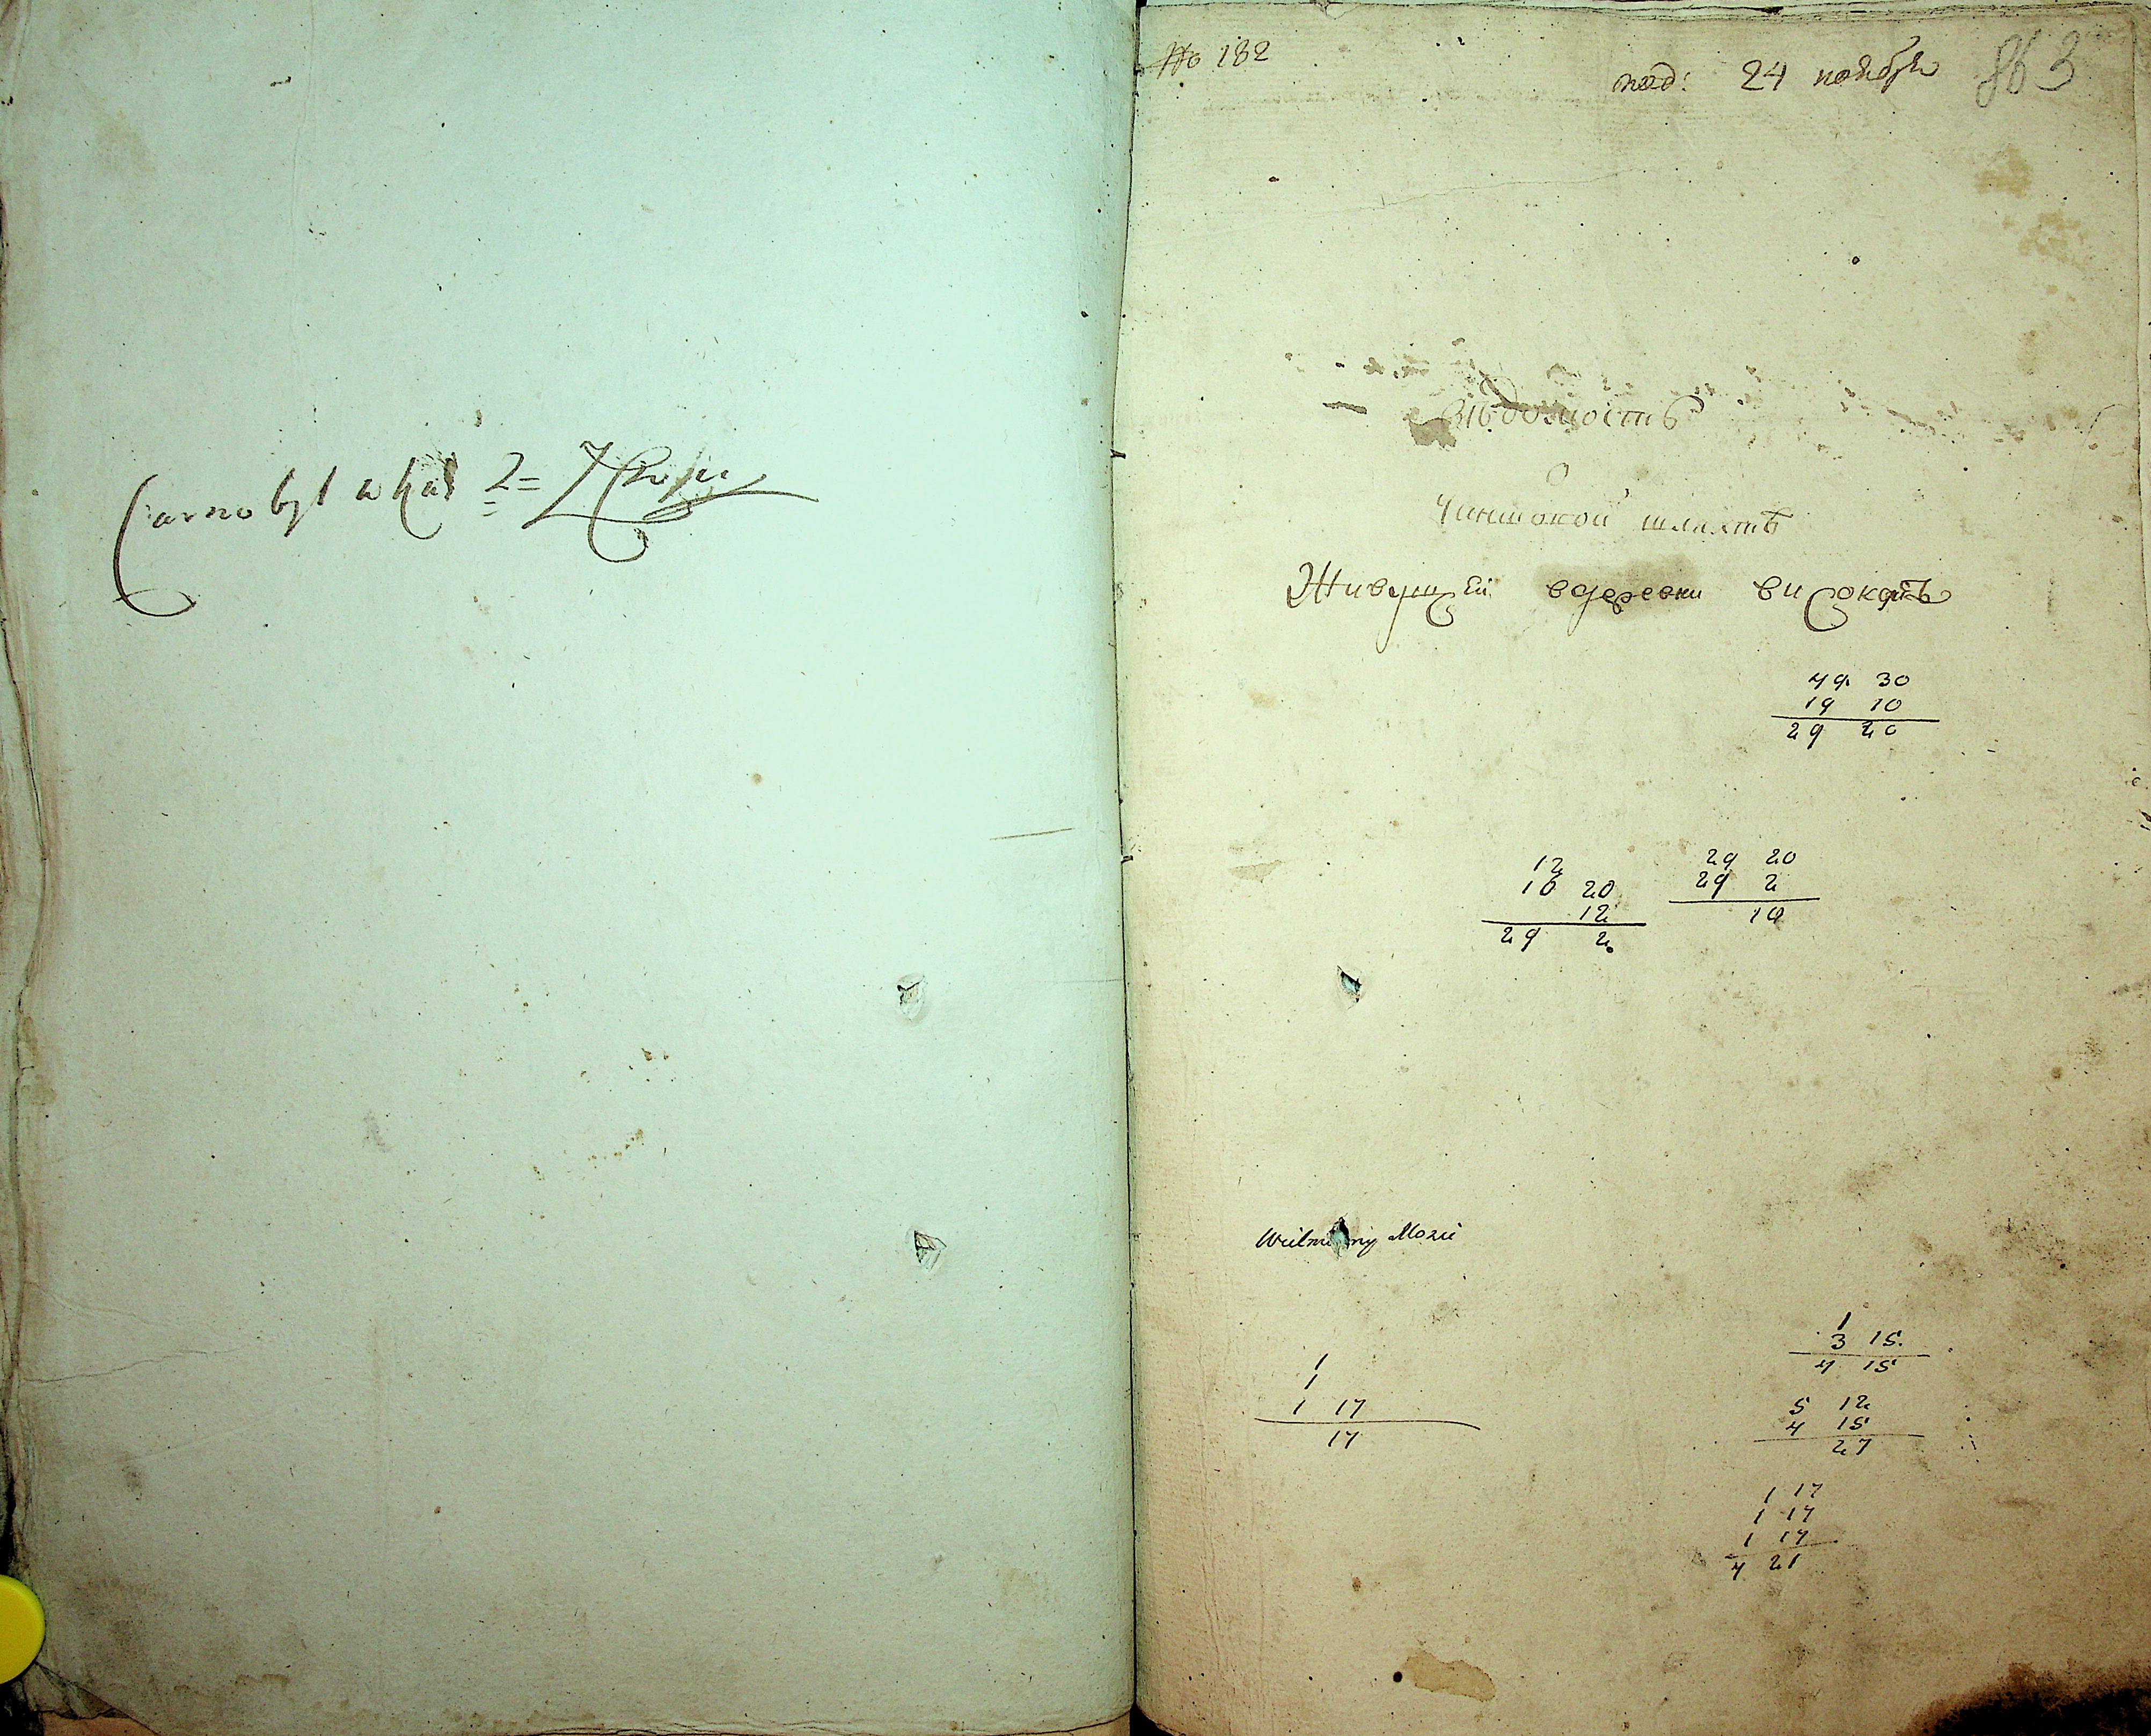 Czarnobyl
No 182
под: 24 ноября 863
Вѣдомость
О
Чиншовой шляхтѣ
Живущей вдеревни високой
49 30
19 10
29 20
12
16 20
12
29 2
29 20
29 2
18
1
3 15.
4 15
1
1
1 17
17
5 12
4 15
27
1 17
1 17
1 17
4 21